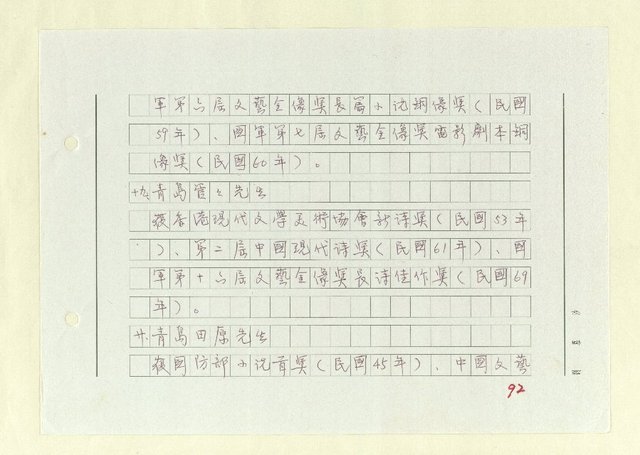 軍第六屆文藝金像獎長篇小說銅像獎(民國
59年)、國軍第七屆文藝金像獎電影劇本銅
像獎(民國60年)。
十九、青島管管先生
獲香港現代文學美術協會新詩獎(民國53年
)、第二屆中國現代詩獎(民國61年)、國
軍第十六屆文藝金像獎長詩佳作獎(民國69
年)。
廿、青島田原先生
獲國防部小說首獎(民國45年)、中國文藝
92